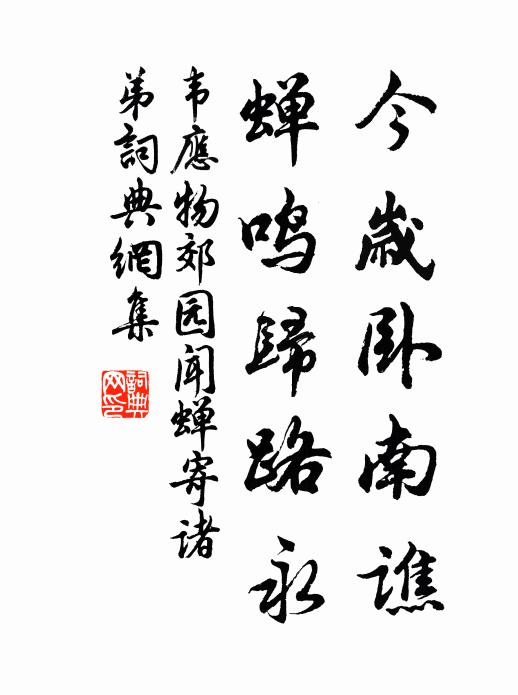 今歲卧南譙
蝉鸣歸路永
韦應物郊园闻蝉寄诸
弟詞典網集
詞典网印